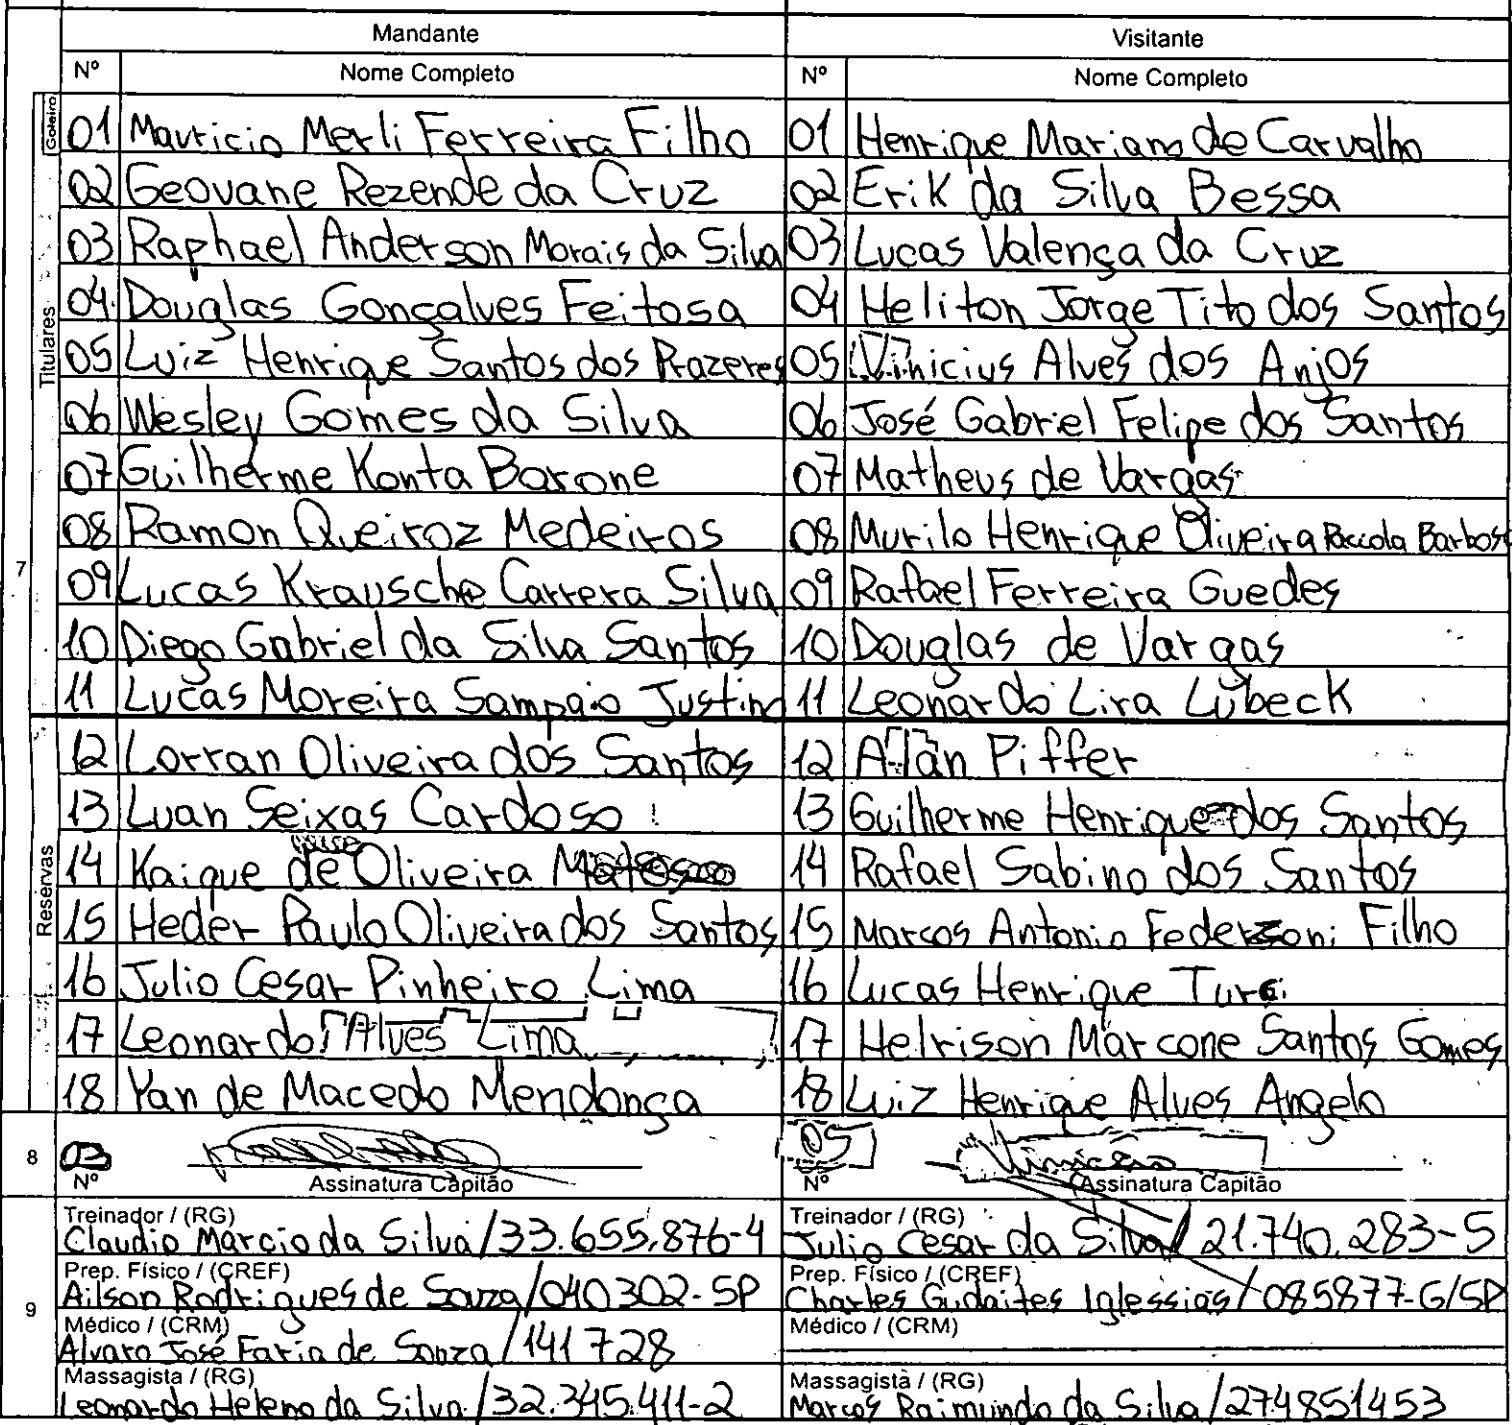 Mandante Visitante
Nº Nome Completo Nº Nome Completo
Goleiro
Titulares
7
01 Mauricio Merli Ferreira Filho 01 Henrique Mariano de Carvalho
02 Geovane Rezende da Cruz 02 Erik da Silva Bessa
03 Raphael Anderson Morais da Silva 03 Lucas Valença da Cruz
04 Douglas Gonçalves Feitosa 04 Heliton Jorge Tito dos Santos
05 Luiz Henrique Santos dos Prazeres 05 Vinicius Alves dos Anjos
06 Wesley Gomes da Silva 06 José Gabriel Felipe dos Santos
07 Guilherme Konta Barone 07 Matheus de Vargas
08 Ramon Queiroz Medeiros 08 Murilo Henrique Oliveira Paccola Barbosa
09 Lucas Krausche Carrera Silva 09 Rafael Ferreira Guedes
10 Diego Gabriel da Silva Santos 10 Douglas de Vargas
11 Lucas Moreira Sampaio Justino 11 Leonardo Lira Lübeck
Reservas
12 Lorran Oliveira dos Santos 12 Alan Piffer
13 Luan Seixas Cardoso 13 Guilherme Henrique dos Santos
14 Kaique de Oliveira 14 Rafael Sabino dos Santos
15 Heder Paulo Oliveira dos Santos 15 Marcos Antonio Federzoni Filho
16 Julio Cesar Pinheiro Lima 16 Lucas Henrique Turci
17 Leonardo Alves Lima 17 Helrison Marcone Santos Gomes
18 Yan de Macedo Mendonça 18 Luiz Henrique Alves Angelo
8 03 05 Vinicius
Nº Assinatura Capitão Nº Assinatura Capitão
9
Treinador / (RG) Treinador / (RG)
Claudio Marcio da Silva/33.655.876-4 Julio Cesar da Silva/21.740.283-5
Prep. Físico / (CREF) Prep. Físico / (CREF)
Ailson Rodrigues de Souza/040302-SP Charles Gudaites Iglessias/085877-G/SP
Médico / (CRM) Médico / (CRM)
Alvaro José Faria de Souza/141728
Massagista / (RG) Massagista / (RG)
Leonardo Heleno da Silva/32.345.411-2 Marcos Raimundo da Silva/274851453